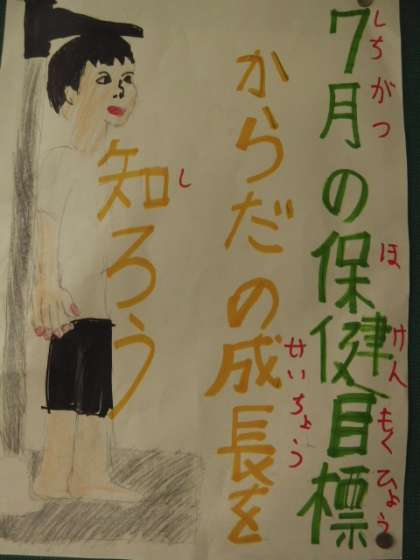 7月の保健目標
しちがつ
ほけんもくひょう
からだの成長を
せいちょう
知ろう
し